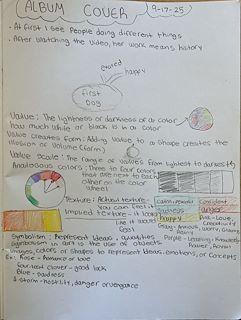 ALBUM COVER 9-17-25
- At first I see People doing different things
- After watching the video, her work means history
happy
First Dog
Value: The lightness or darkness of a color
how much white or black is in a color
Value creates form: Adding value to a shape creates the
illusion of volume (form)
Value Scale: The range of values from lightest to darkest
Analogous colors: Three to four colors
that are next to each
other on the color
wheel
Texture: Actual texture -
You can feel it
Implied texture - it looks
like it would
feel
Calm, peaceful
Confident
sadness
anger
happy
Pink - Love,
Purple -
Symbolism: Represent ideas, qualities
Symbolism in art is the use of objects,
images, colors or shapes to represent ideas, emotions, or concepts
Ex: Rose - Romance or love
four leaf clover - good luck
Blue - sadness
A storm - hostility, danger or vengeance